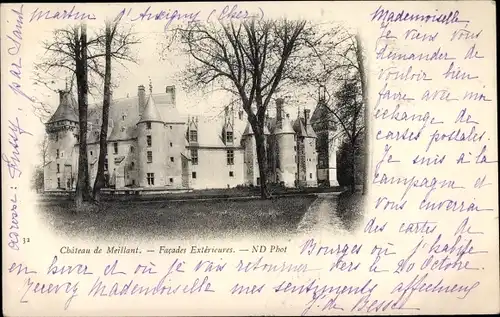 Martin d'Auxigny (Cher)
adresse : Fussy, par Saint
Mademoiselle
Je viens vous
demander de
vouloir bien
faire avec moi
échange de
cartes postales.
Je suis à la
campagne et
vous enverrai
des cartes de
Bourges où j'habite
32
Château de Meillant. — Façades Extérieures. — ND Phot
en hiver et où je vais retourner vers le 20 Octobre.
Recevez Mademoiselle mes sentiments affectueux
J. de Besse